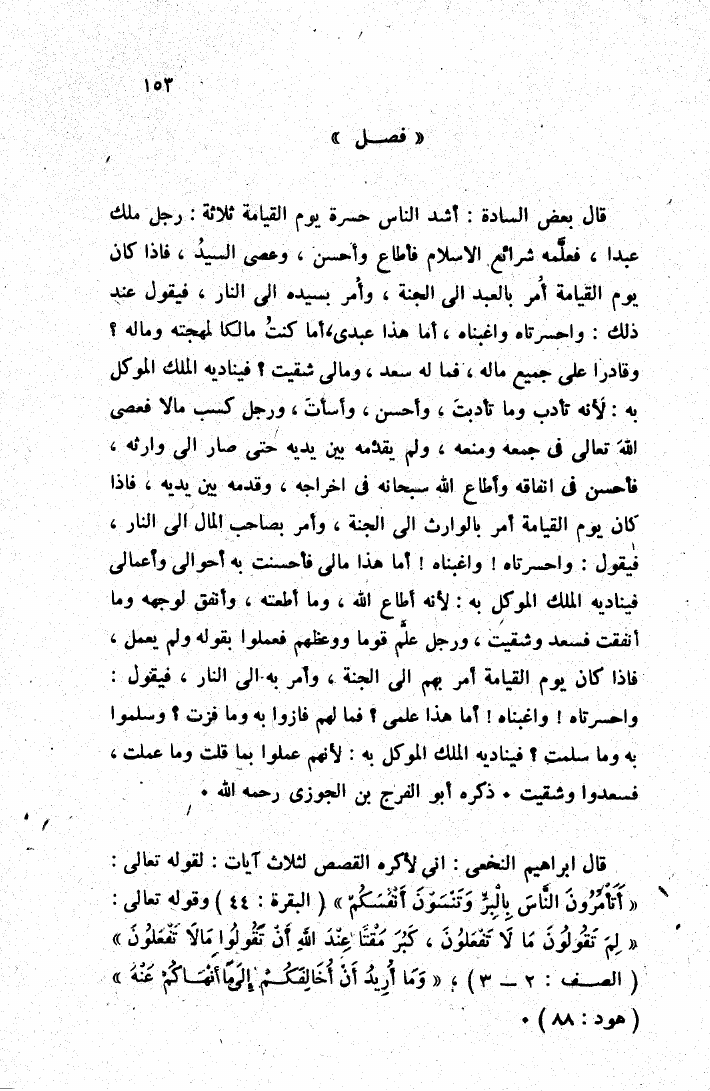 ١٥٣
« فصــل »
قال بعض السادة : أشد الناس حسرة يوم القيامة ثلاثة : رجل ملك
عبدا ، فعلَّمه شرائع الاسلام فأطاع وأحسن ، وعصى السيدُ ، فاذا كان
يوم القيامة أُمر بالعبد الى الجنة ، وأُمر بسيده الى النار ، فيقول عند
ذلك : واحسرتاه واغبناه ، أما هذا عبدى،أما كنتُ مالكا لمهجته وماله ؟
وقادرا على جميع ماله ، فما له سعد ، ومالى شقيت ؟ فيناديه الملك الموكل
به : لَأنه تأدب وما تأدبتَ ، وأحسن ، وأسأتَ ، ورجل كسب مالا فعصى
اللهَ تعالى فى جمعه ومنعه ، ولم يقدّمه بين يديه حتى صار الى وارثه ،
فأحسن فى انفاقه وأطاع الله سبحانه فى اخراجه ، وقدمه بين يديه ، فاذا
كان يوم القيامة أمر بالوارث الى الجنة ، وأمر بصاحب المال الى النار ،
فيقول : واحسرتاه ! واغبناه ! أما هذا مالى فأحسنت به أحوالى وأعمالى
فيناديه الملك الموكل به : لأنه أطاع الله ، وما أطعته ، وأنفق لوجهه وما
أنفقت فسعد وشقيت ، ورجل علَّم قوما ووعظهم فعملوا بقوله ولم يعمل ،
فاذا كان يوم القيامة أمر بهم الى الجنة ، وأمر به الى النار ، فيقول :
واحسرتاه ! واغبناه ! أما هذا علمى ؟ فما لهم فازوا به وما فزت ؟ وسلموا
به وما سلمت ؟ فيناديه الملك الموكل به : لأنهم عملوا بما قلت وما عملت ،
فسعدوا وشقيت • ذكره أبو الفرج بن الجوزى رحمه الله •
قال ابراهيم النخعى : انى لأكره القصص لثلاث آيات : لقوله تعالى :
« أَتَأْمُرُونَ النَّاسَ بِالْبِرِّ وَتَنْسَوْنَ أَنْفُسَكُمْ » ( البقرة : ٤٤ ) وقوله تعالى :
« لِمَ تَقُولُونَ مَا لَا تَفْعَلُونَ ، كَبُرَ مَقْتًا عِنْدَ اللهِ أَنْ تَقُولُوا مَالَا تَفْعَلُونَ »
( الصــف : ٢ — ٣ ) ، « وَمَا أُرِيدُ أَنْ أُخَالِفَكُـمْ إِلَى مَا أَنْهَـاكُمْ عَنْهُ »
( هود : ٨٨ ) •